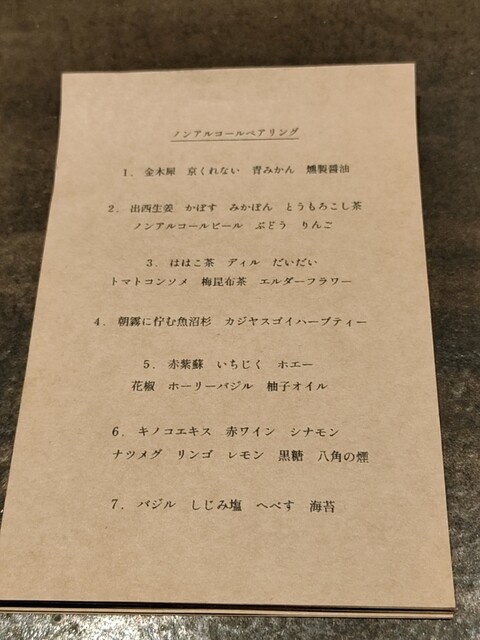 ノンアルコールペアリング
1. 金木犀 京くれない 青みかん 燻製醤油
2. 出西生姜 かぼす みかぽん とうもろこし茶
ノンアルコールビール ぶどう りんご
3. ははこ茶 ディル だいだい
トマトコンソメ 梅昆布茶 エルダーフラワー
4. 朝霧に佇む魚沼杉 カジヤスゴイハーブティー
5. 赤紫蘇 いちじく ホエー
花椒 ホーリーバジル 柚子オイル
6. キノコエキス 赤ワイン シナモン
ナツメグ リンゴ レモン 黒糖 八角の煙
7. バジル しじみ塩 へべす 海苔